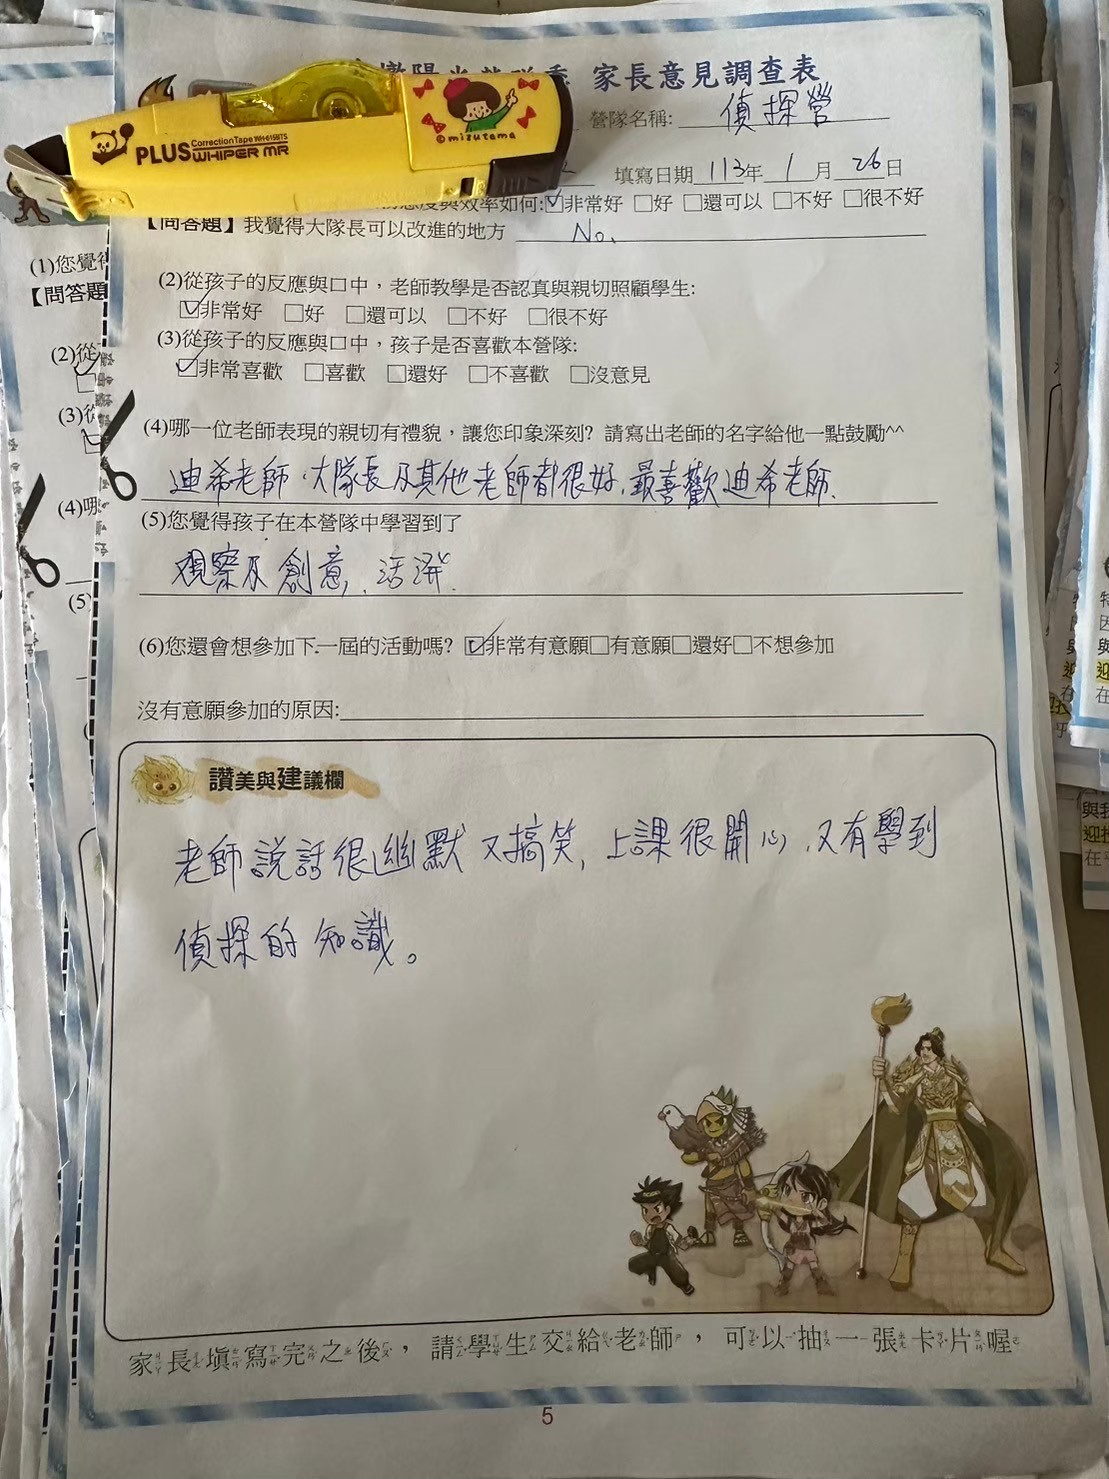 家長意見調查表
營隊名稱: 偵探營
CorrectionTape WH-615BTS
PLUS WHIPER MR
©mizutama
填寫日期 113年 1 月 26 日
效率如何:☑非常好 □好 □還可以 □不好 □很不好
【問答題】我覺得大隊長可以改進的地方 No.
(2)從孩子的反應與口中,老師教學是否認真與親切照顧學生:
☑非常好 □好 □還可以 □不好 □很不好
(3)從孩子的反應與口中,孩子是否喜歡本營隊:
☑非常喜歡 □喜歡 □還好 □不喜歡 □沒意見
(4)哪一位老師表現的親切有禮貌,讓您印象深刻? 請寫出老師的名字給他一點鼓勵^^
迪希老師、大隊長及其他老師都很好,最喜歡迪希老師.
(5)您覺得孩子在本營隊中學習到了
觀察及創意、活潑.
(6)您還會想參加下一屆的活動嗎? ☑非常有意願□有意願□還好□不想參加
沒有意願參加的原因:
讚美與建議欄
老師說話很幽默又搞笑,上課很開心,又有學到
偵探的知識。
家長填寫完之後,請學生交給老師,可以抽一張卡片喔
5
(1)您覺得
【問答題
(2)從
(3)從
(4)哪
(5)